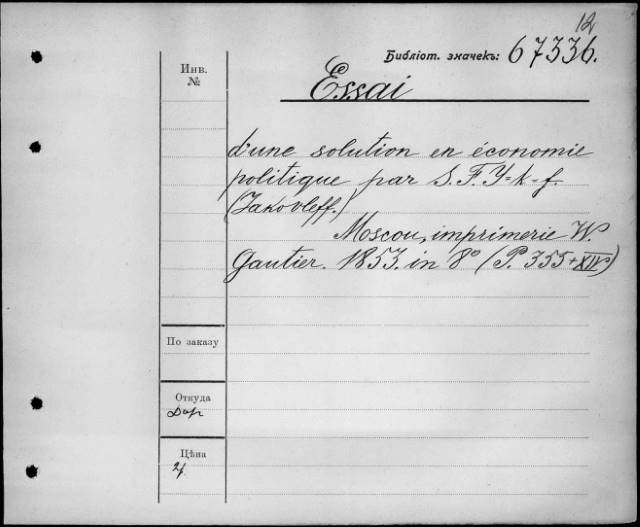 12
Библіот. значекъ: 67336.
Инв.
№
Essai
d'une solution en économie
politique par S. F. Y=k=f.
(Jakovleff.)
Moscou, imprimerie W.
Gautier. 1853. in 8° (P. 355+XIV)
По заказу
Откуда
Дар
Цѣна